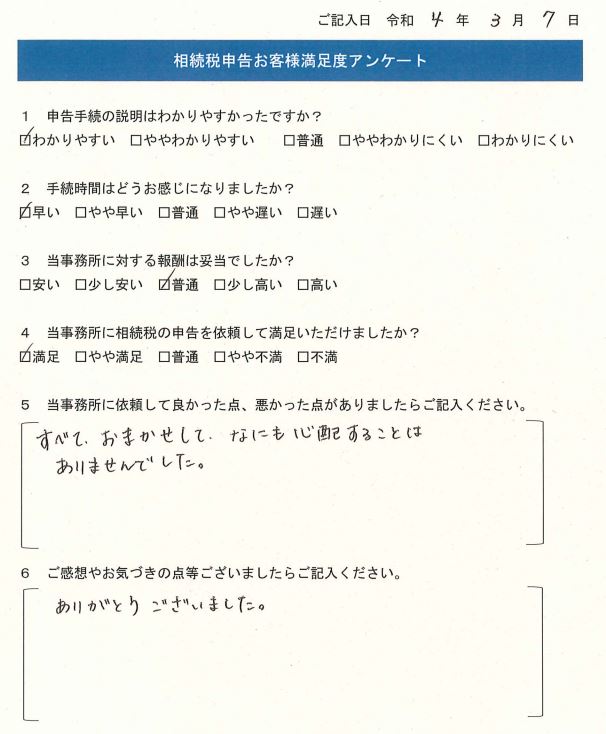 ご記入日 令和 4 年 3 月 7 日
相続税申告お客様満足度アンケート
1 申告手続の説明はわかりやすかったですか?
☑わかりやすい □ややわかりやすい □普通 □ややわかりにくい □わかりにくい
2 手続時間はどうお感じになりましたか?
☑早い □やや早い □普通 □やや遅い □遅い
3 当事務所に対する報酬は妥当でしたか?
□安い □少し安い ☑普通 □少し高い □高い
4 当事務所に相続税の申告を依頼して満足いただけましたか?
☑満足 □やや満足 □普通 □やや不満 □不満
5 当事務所に依頼して良かった点、悪かった点がありましたらご記入ください。
すべて、おまかせして、なにも心配することは
ありませんでした。
6 ご感想やお気づきの点等ございましたらご記入ください。
ありがとうございました。